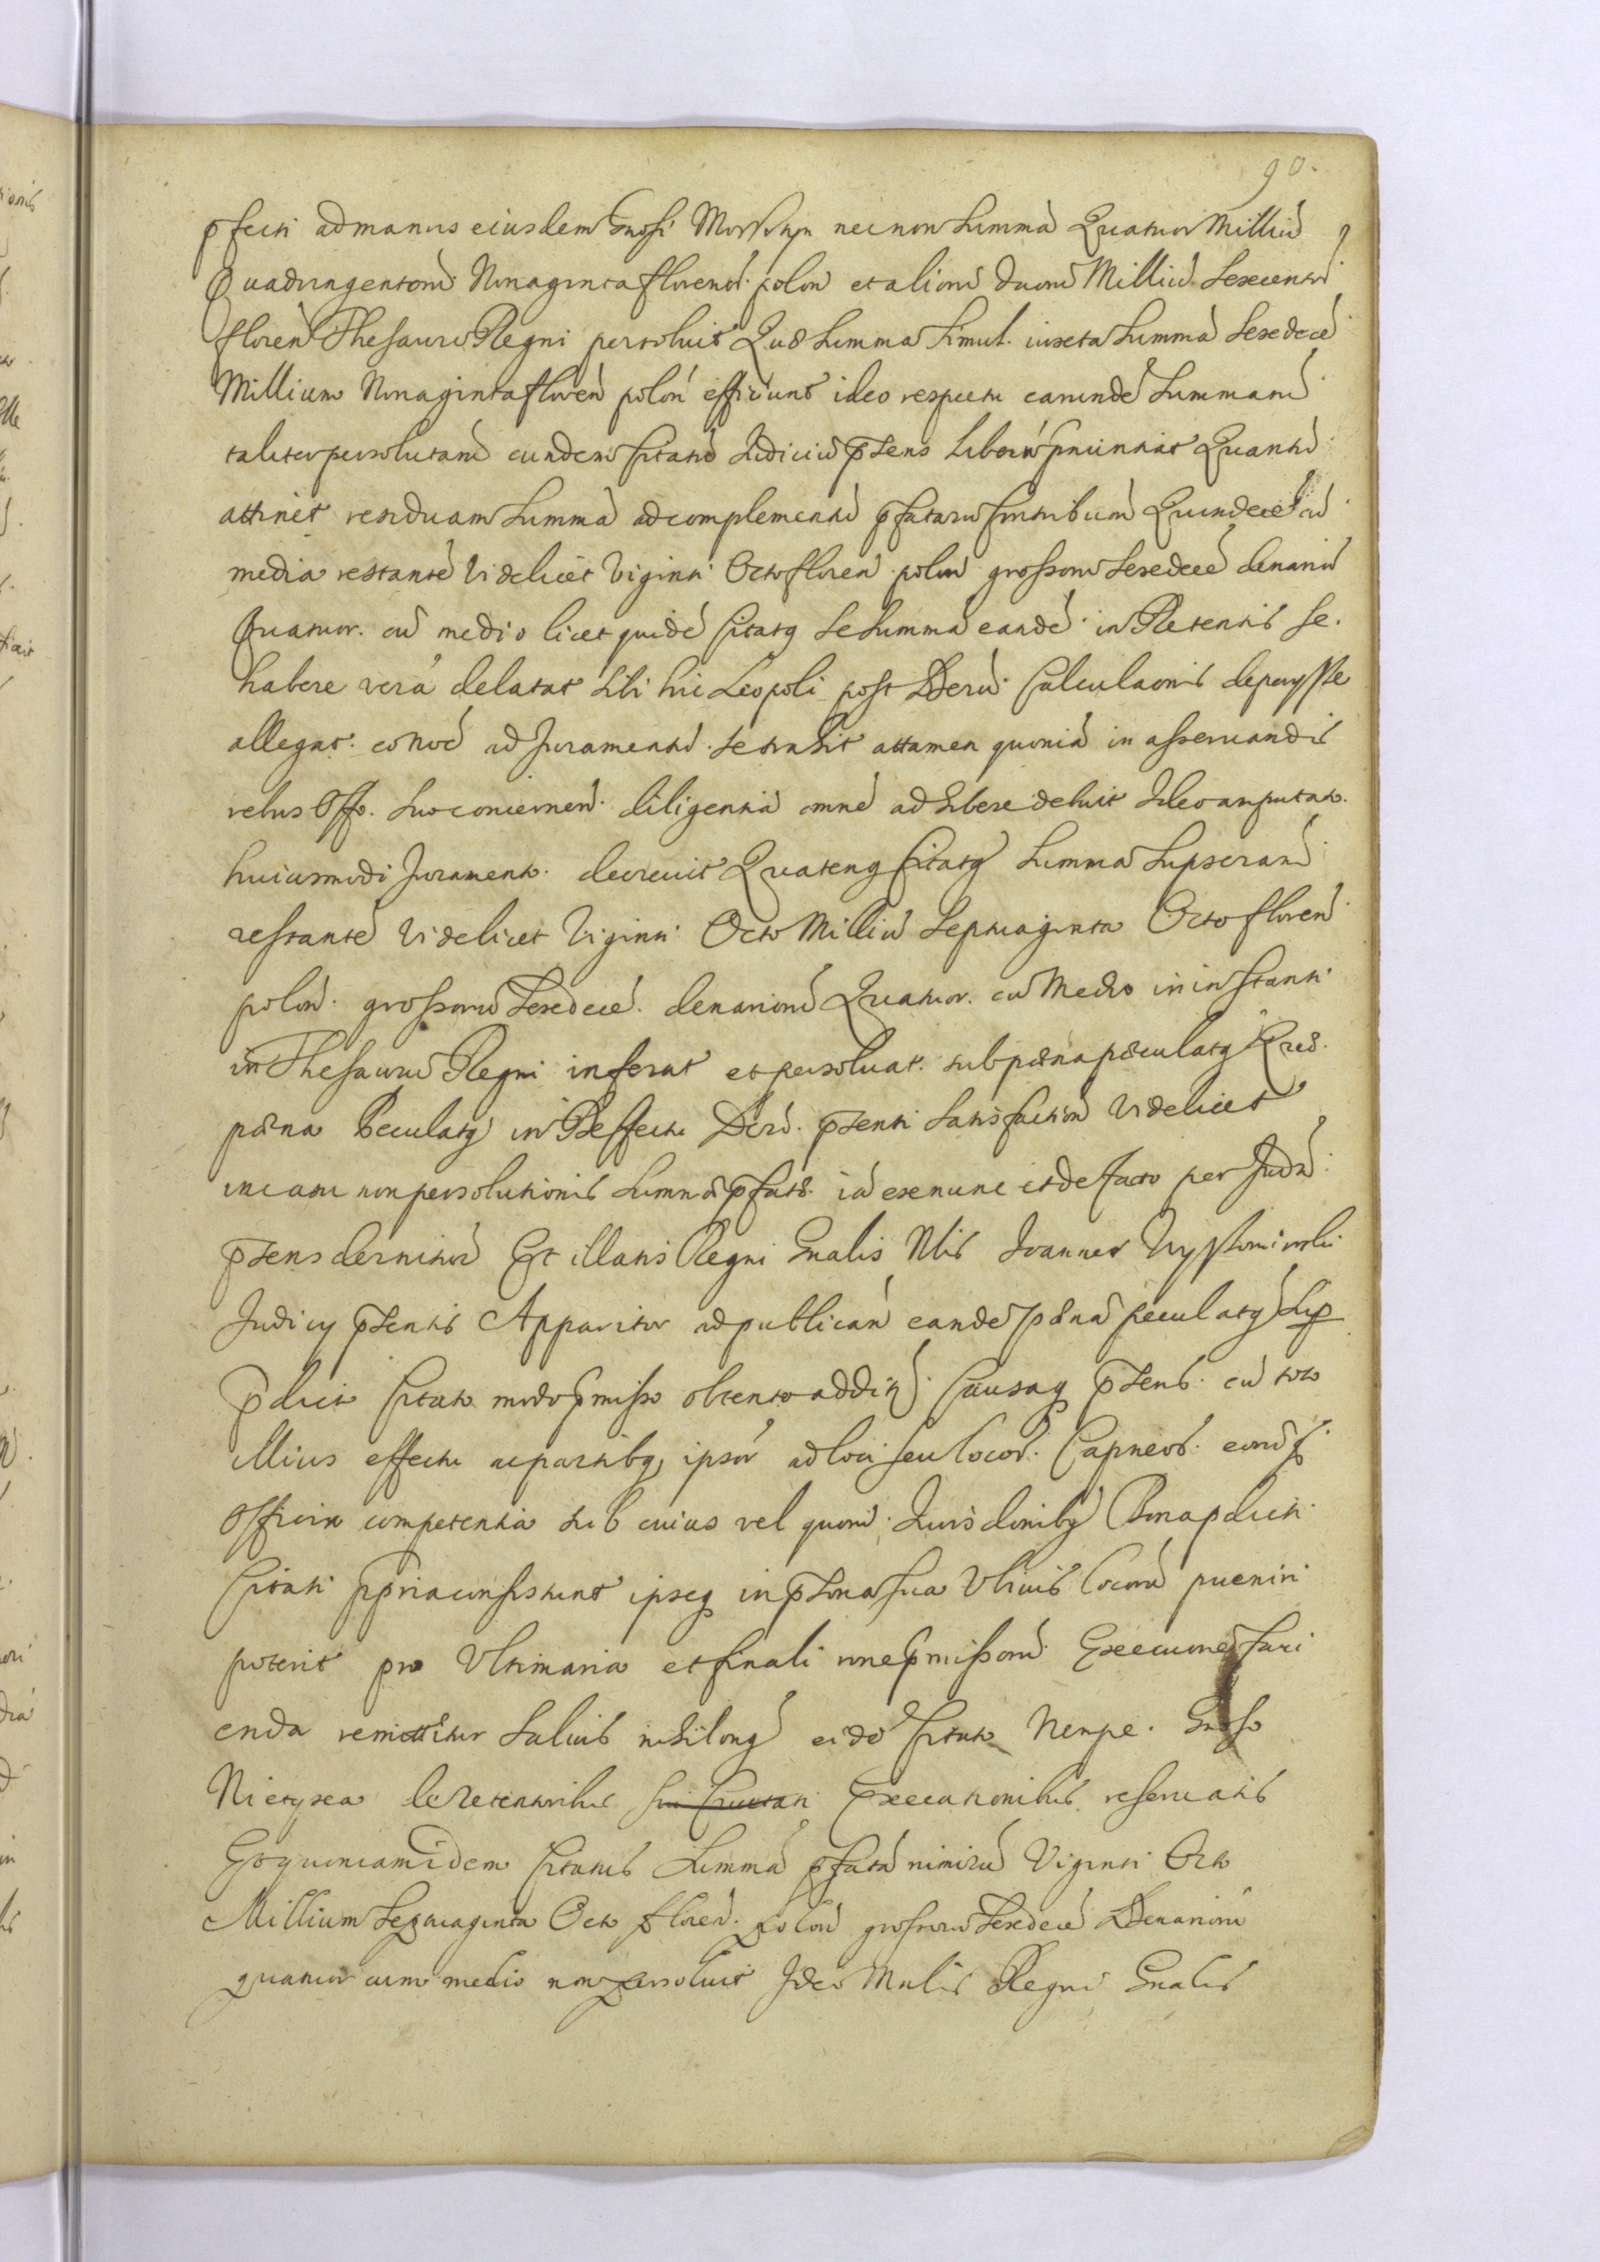 90.
pfecti ad manus eiusdem Gnosi Morsztyn nec non Summã Quatuor Milliũ
Quadringentorũ Nonaginta florenorũ polon et aliorũ duorũ Milliũ Sexcentorũ
floren Thesauro Regni persoluit Quæ Summa Simul iuxta Summã Sexdecẽ
Millium Nonaginta floren polon efficiunt ideo respectu earundẽ Summarũ
taliter persolutarũ eundem Citatũ Iudiciũ pñs liberũ pnunciat Quantũ
attinet residuam Summã ad complementũ pfatarũ Contribuũ Quindecẽ cũ
media restantẽ Videlicet Viginti Octo floren polon grossorũ Sexdecẽ denariorũ
Quatuor cũ medio licet quidẽ Citatq se Summã eandẽ in Retentis se
habere verã delatat sibi hic Leopoli post Decretũ Calculaõnis
allegat et hoc ad Juramentũ se trahit attamen quoniã in asseruandis
rebus Offo suo concernen diligentiã omnẽ adhibere debuit Ideo amputato
huiusmodi Juramento decreuit Quatenq Citatq Summã Supscrам
restantẽ Videlicet Viginti Octo Milliũ Septuaginta Octo floren
polon grossorũ Sexdecẽ denariorũ Quatuor cũ Medio in instanti
in Thesaurũ Regni inferat et persoluat sub pæna pæculatq Quæ
pæna Peculatq in Deffectu Decreto pñti Satisfactiõn Videlicet
in casu non persolutionis Summæ pfatæ iã ex nunc et de facto per Judm
pñs decernitur Et illatis Regni Gnalis Nlis Joannes
Judicy pñtis Apparitor ad publicanã eandẽ pænã peculatq Sup
pdict Citato modo pmisso obtento additq Causaq pñs cũ toto
illius effectu ac partibq ipsor ad loci seu locor Capneos eorũq
Officia competentia sub cuius vel quorũ Jurisdonibq Bona pdicti
Citati ppria consistunt ipseq in psona sua Vbiuis locorũ pueniri
poterit pro Vltimaria et finali rõne pmissorũ Executione faci
enda remittitur Saluis nihilonq eidẽ Citato Nempe Gnoso
de Retentoribus Executionibus reseruatis
Et quoniam idem Citatus Summã pfatã nimirũ Viginti Octo
Millium Septuaginta Octo floren polon grossorũ Sexdecẽ Denariorũ
quatuor cum medio non persoluit Ideo Mnlis Regni Gnalis